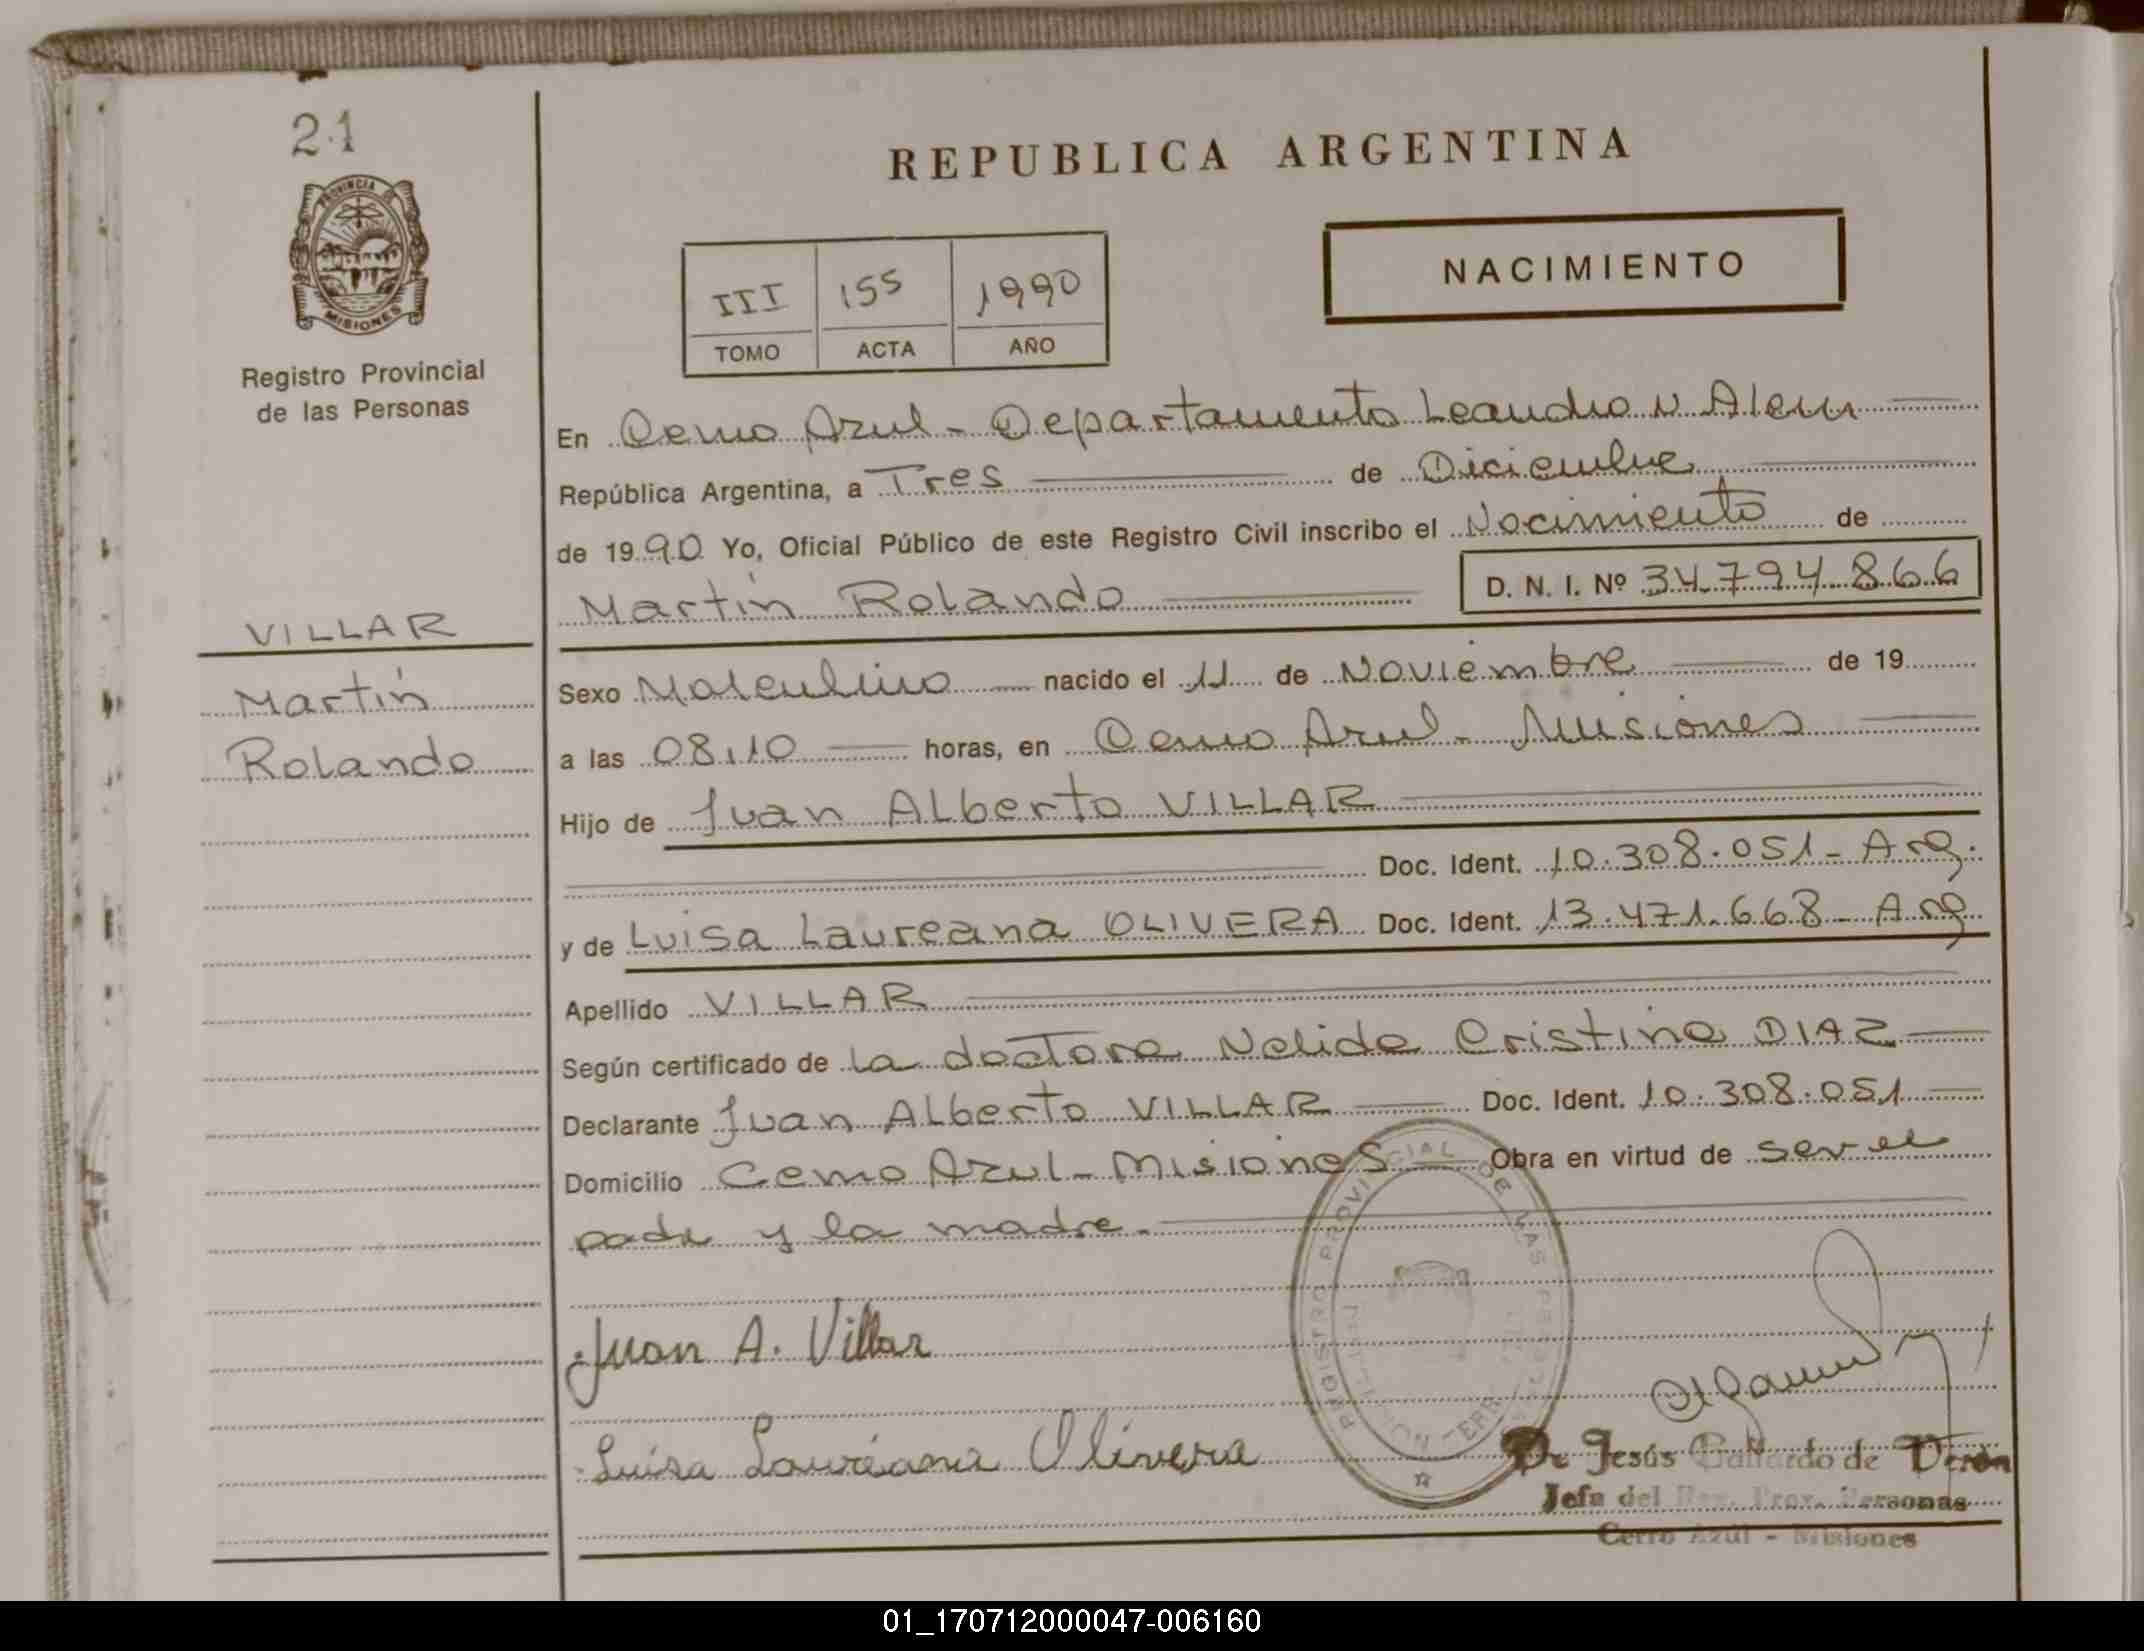 21
PROVINCIA
MISIONES
Registro Provincial
de las Personas
VILLAR
Martín
Rolando
REPUBLICA ARGENTINA
III 155 1990
TOMO ACTA AÑO
NACIMIENTO
En Cerro Azul - Departamento Leandro N Alem
República Argentina, a Tres de Diciembre
de 1990 Yo, Oficial Público de este Registro Civil inscribo el Nacimiento de
Martín Rolando D. N. I. Nº 34.794.866
Sexo Masculino nacido el 11 de Noviembre de 19
a las 08,10 horas, en Cerro Azul - Misiones
Hijo de Juan Alberto VILLAR
Doc. Ident. 10.308.051 - Arg.
y de Luisa Laureana OLIVERA Doc. Ident. 13.471.668 - Arg
Apellido VILLAR
Según certificado de la doctora Nelida Cristina DIAZ
Declarante Juan Alberto VILLAR Doc. Ident. 10.308.051
Domicilio Cerro Azul - Misiones Obra en virtud de ser el
padre y la madre.
REGISTRO PROVINCIAL DE LAS
Juan A. Villar
Luisa Laureana Olivera
Jesús Gallardo de Verón
Jefa del Reg. Prov. Personas
Cerro Azul - Misiones
01_170712000047-006160